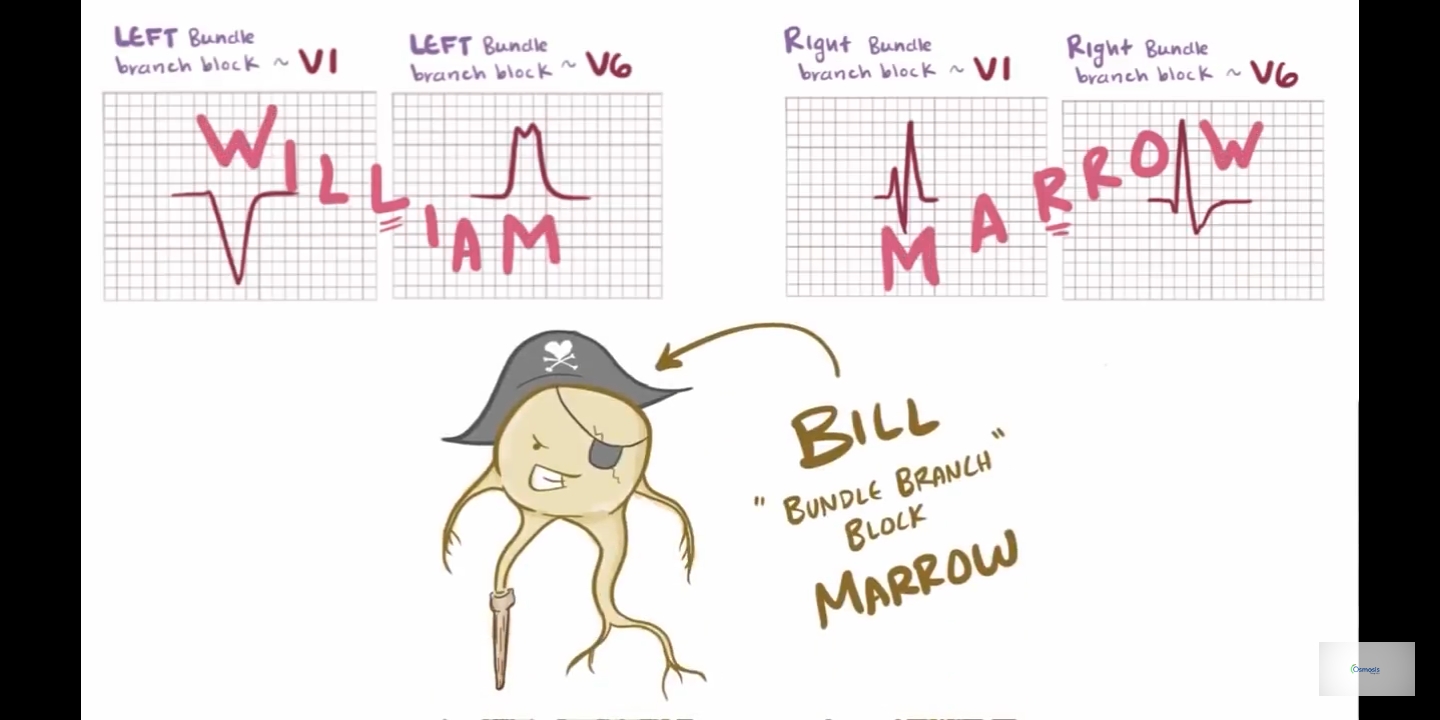 LEFT Bundle
branch block ~ V1
LEFT Bundle
branch block ~ V6
Right Bundle
branch block ~ V1
Right Bundle
branch block ~ V6
WILLIAM
MARROW
BILL
"BUNDLE BRANCH"
BLOCK
MARROW
Osmosis